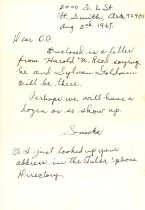 Ft. Smith, Ark. 72901
Aug 2nd 1969.
Dear O.B.
Enclosed is a letter
from Harold N. Reed saying
he and Sylvan Goldman
will be there.
Perhaps we will have a
dozen or so show up.
Smoke
P.S I just looked up your
address in the Tulsa 'phone
Directory.